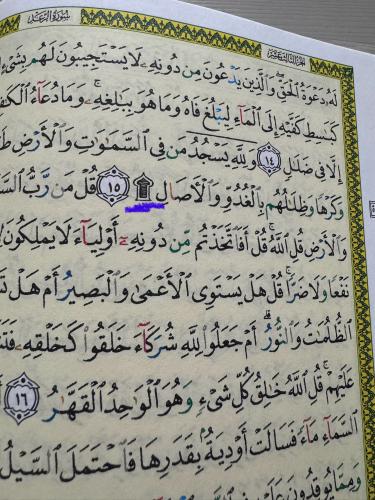 سُورَةُ الرَّعْدِ
الجُزْءُ الثَّالِثَ عَشَرَ
لَهُۥ دَعْوَةُ ٱلْحَقِّ ۖ وَٱلَّذِينَ يَدْعُونَ مِن دُونِهِۦ لَا يَسْتَجِيبُونَ لَهُم بِشَىْءٍ
كَبَٰسِطِ كَفَّيْهِ إِلَى ٱلْمَآءِ لِيَبْلُغَ فَاهُ وَمَا هُوَ بِبَٰلِغِهِۦ ۚ وَمَا دُعَآءُ
إِلَّا فِى ضَلَٰلٍ ١٤ وَلِلَّهِ يَسْجُدُ مَن فِى ٱلسَّمَٰوَٰتِ وَٱلْأَرْضِ
وَكَرْهًا وَظِلَٰلُهُم بِٱلْغُدُوِّ وَٱلْءَاصَالِ ۩ ١٥ قُلْ مَن رَّبُّ
وَٱلْأَرْضِ قُلِ ٱللَّهُ ۚ قُلْ أَفَٱتَّخَذْتُم مِّن دُونِهِۦٓ أَوْلِيَآءَ لَا يَمْلِكُونَ
نَفْعًا وَلَا ضَرًّا ۚ قُلْ هَلْ يَسْتَوِى ٱلْأَعْمَىٰ وَٱلْبَصِيرُ أَمْ هَلْ
ٱلظُّلُمَٰتُ وَٱلنُّورُ ۗ أَمْ جَعَلُوا۟ لِلَّهِ شُرَكَآءَ خَلَقُوا۟ كَخَلْقِهِۦ
عَلَيْهِمْ ۚ قُلِ ٱللَّهُ خَٰلِقُ كُلِّ شَىْءٍ وَهُوَ ٱلْوَٰحِدُ ٱلْقَهَّٰرُ ١٦
ٱلسَّمَآءِ مَآءً فَسَالَتْ أَوْدِيَةٌۢ بِقَدَرِهَا فَٱحْتَمَلَ ٱلسَّيْلُ
وَمِمَّا يُوقِدُونَ